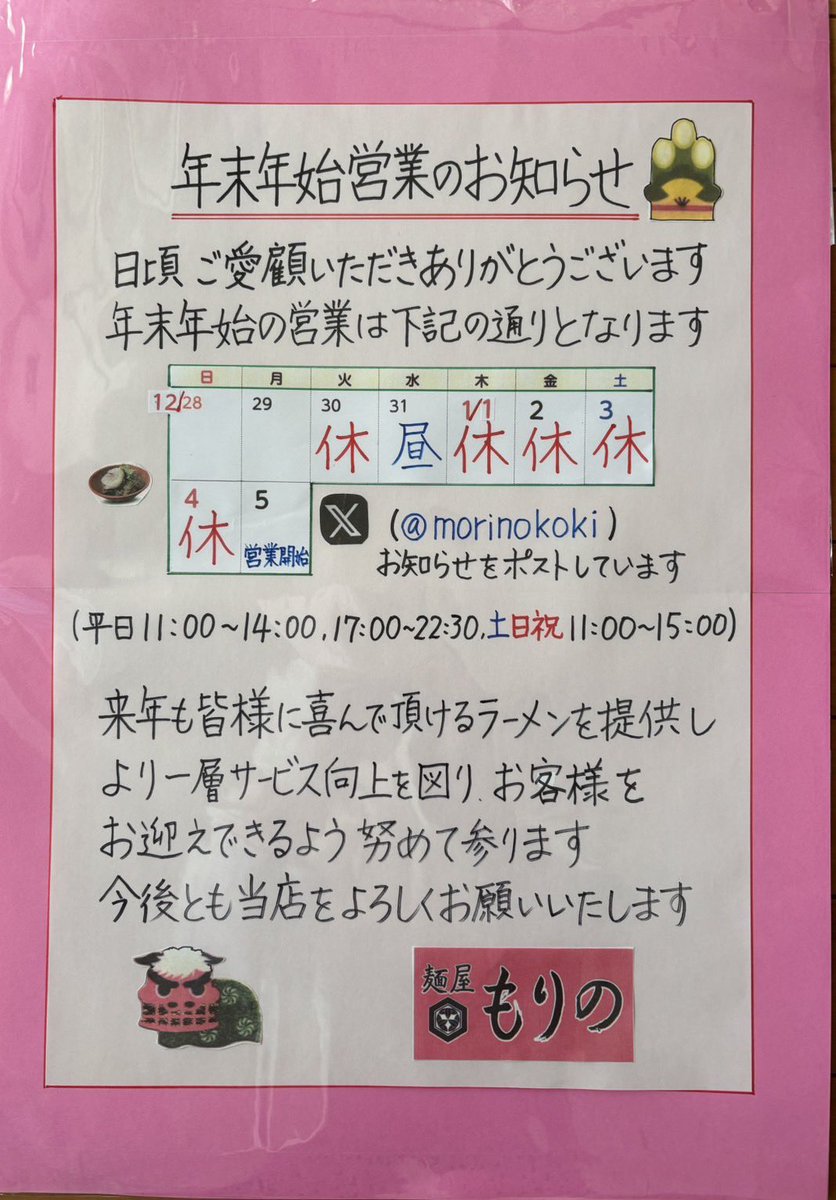 年末年始営業のお知らせ
日頃ご愛顧いただきありがとうございます
年末年始の営業は下記の通りとなります
日 月 火 水 木 金 土
12/28 29 30 31 1/1 2 3
休 昼 休 休 休
4 5
休 営業開始
X (@morinokoki)
お知らせをポストしています
(平日11:00~14:00,17:00~22:30,土日祝11:00~15:00)
来年も皆様に喜んで頂けるラーメンを提供し
より一層サービス向上を図り、お客様を
お迎えできるよう努めて参ります
今後とも当店をよろしくお願いいたします
麺屋
もりの